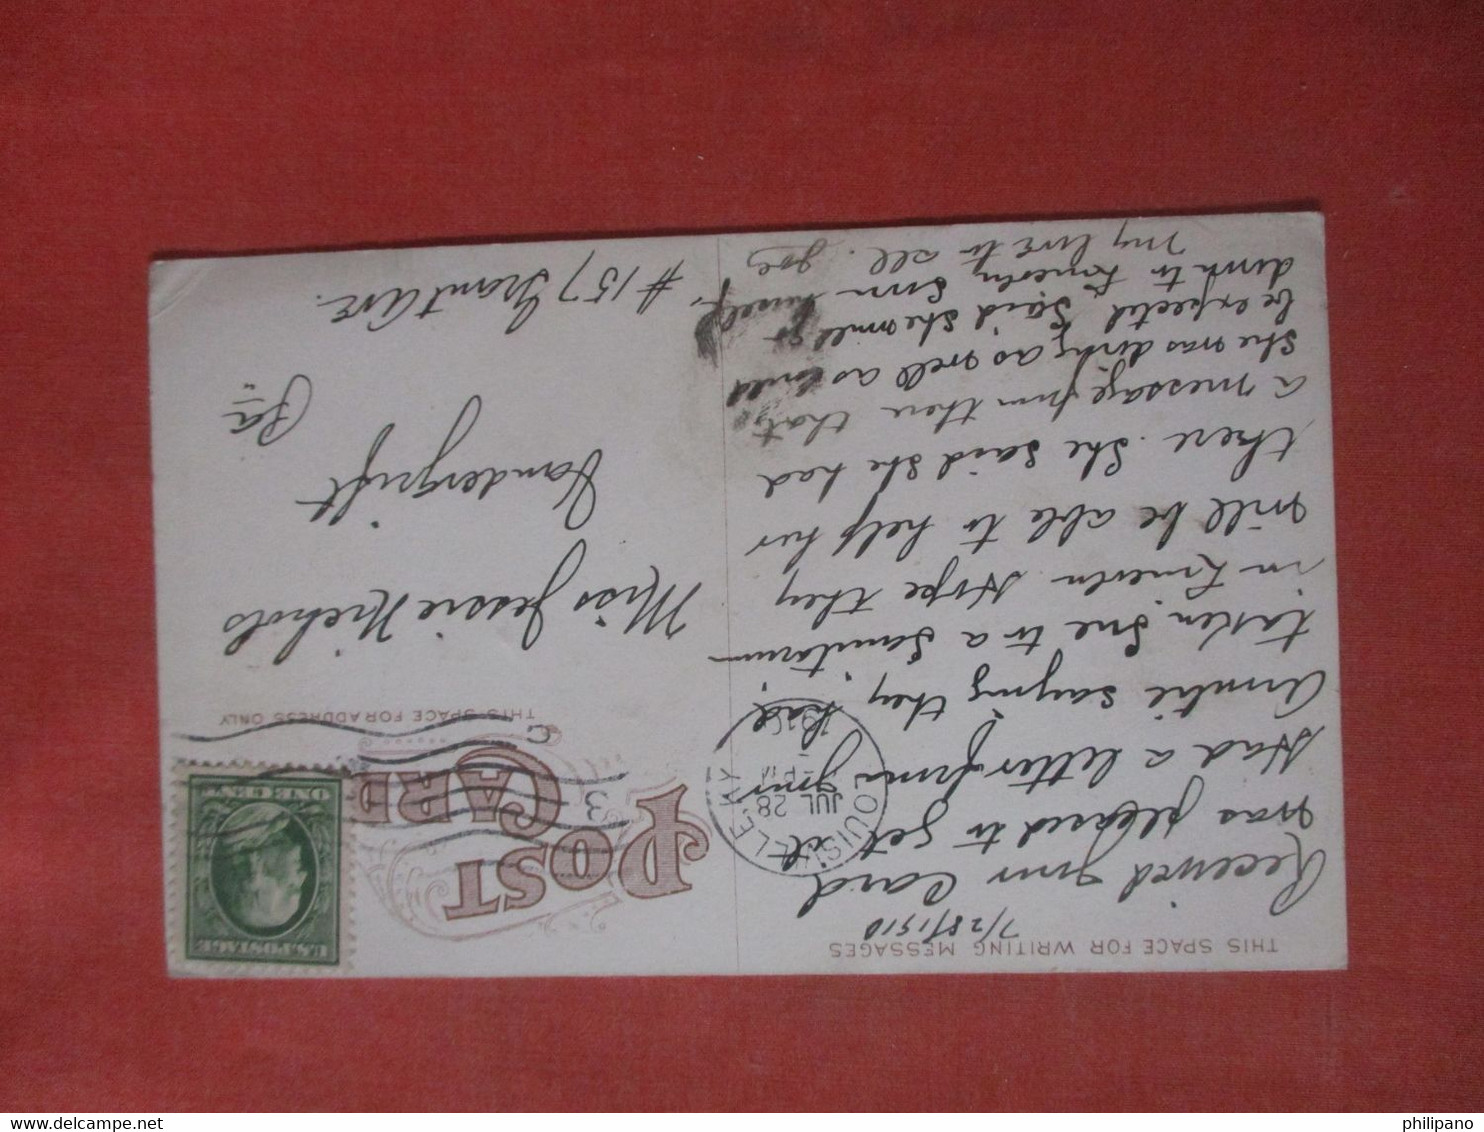 THIS SPACE FOR WRITING MESSAGES
7/28/1910
Received your Card
was pleased to get it
Had a letter from your
saying they had
taken Sue to a Sanitarium
in Hope they
will be able to help her
there. She said she had
a message from there that
She was doing as well as could
be expected Said she will
down to Soon
My love to all.
LOUISVILLE, KY
JUL 28
-PM
1910
POST
CARD
THIS SPACE FOR ADDRESS ONLY
U.S. POSTAGE
ONE CENT
3
C
Miss Jessie Nichols
Vandergrift
Pa
#157 Grant Ave.
philipano